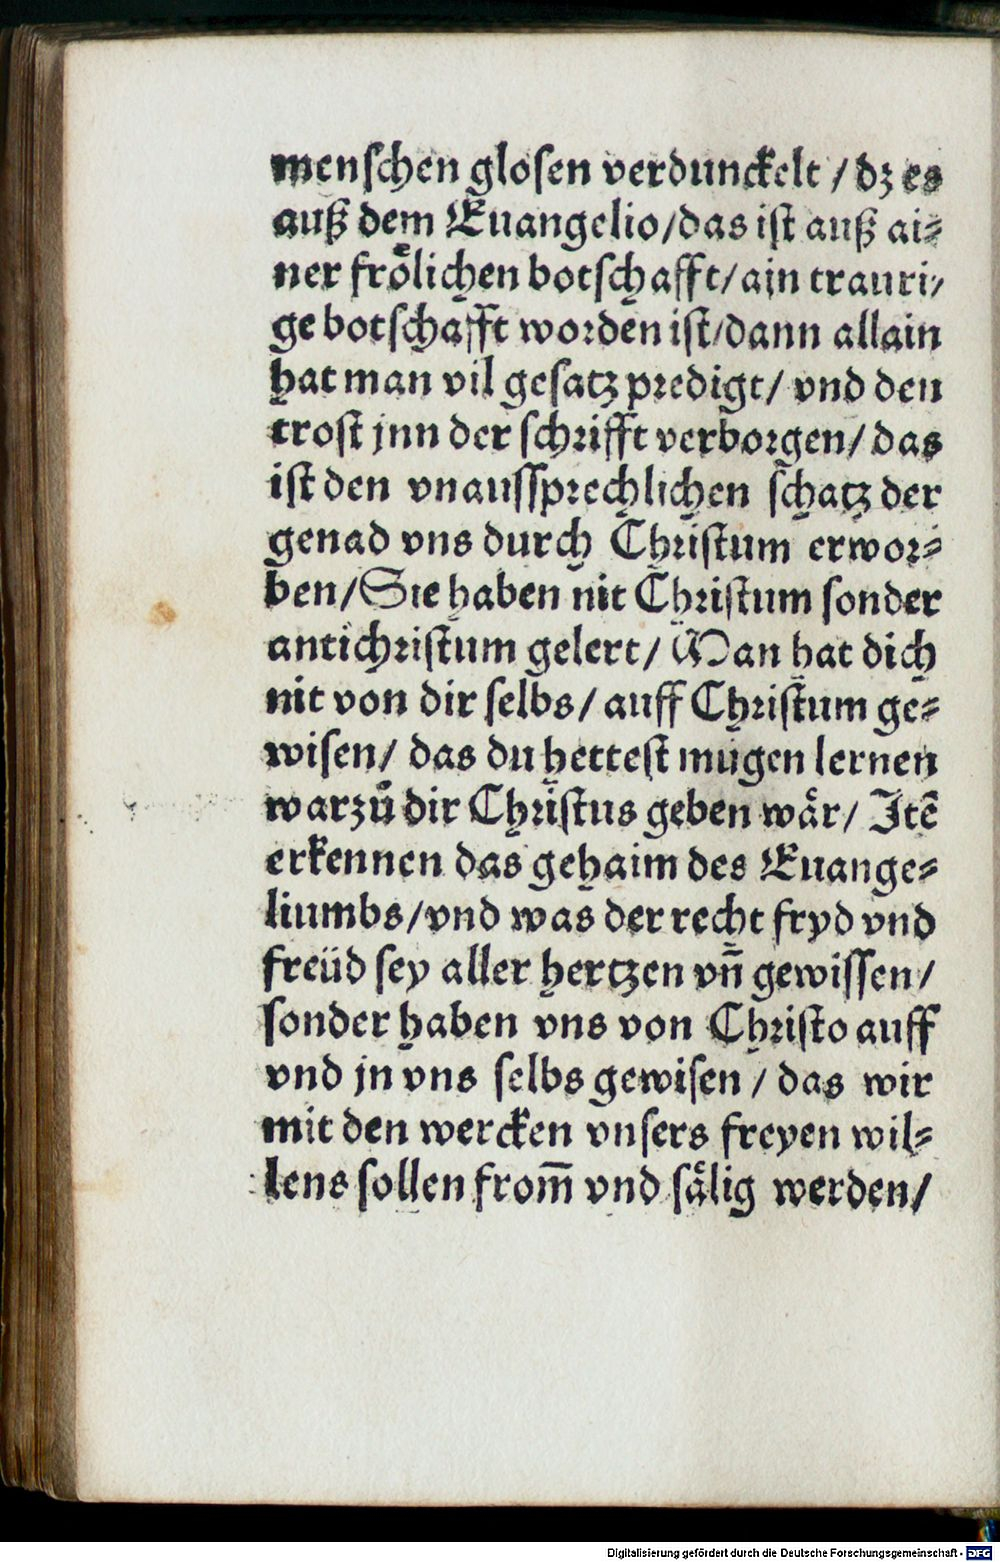 menschen glosen verdunckelt / dz es
auß dem Euangelio/das ist auß ai⸗
ner froͤlichen botschafft/ain trauri⸗
ge botschafft worden ist/dann allain
hat man vil gesatz predigt/ vnd den
trost jnn der schrifft verborgen/ das
ist den vnaussprechlichen schatz der
genad vns durch Christum erwor⸗
ben/Sie haben nit Christum sonder
antichristum gelert/ Man hat dich
nit von dir selbs/ auff Christum ge⸗
wisen/ das du hettest mugen lernen
warzuͦ dir Christus geben waͤr/ Itē
erkennen das gehaim des Euange⸗
liumbs/vnd was der recht fryd vnd
freüd sey aller hertzen vn̄ gewissen/
sonder haben vns von Christo auff
vnd jn vns selbs gewisen / das wir
mit den wercken vnsers freyen wil⸗
lens sollen from̄ vnd saͤlig werden/
Digitalisierung gefördert durch die Deutsche Forschungsgemeinschaft - DFG